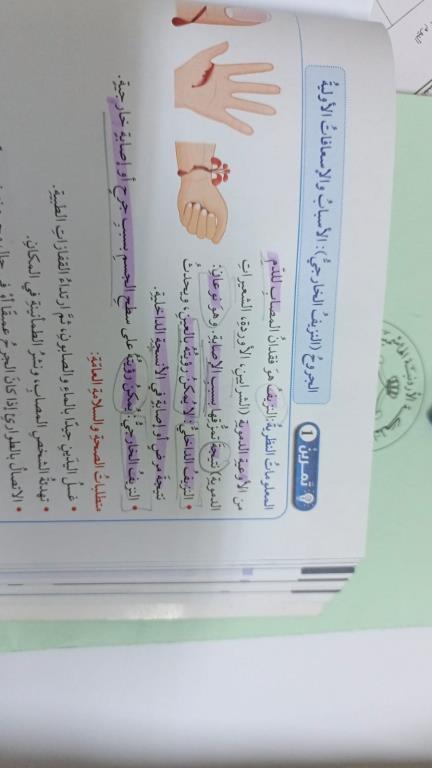 تمرين 1
الجروحُ (النزيفُ الخارجيُّ): الأسبابُ والإسعافاتُ الأوليةُ
المعلوماتُ النظريةُ: النزيفُ هوَ فقدانُ المصابِ للدَّمِ
من الأوعيةِ الدمويةِ (الشرايينِ، الأوردةِ، الشعيراتِ
الدمويةِ) نتيجةَ تمزُّقِها بسببِ الإصابةِ. وهوَ نوعانِ:
• النزيفُ الداخليُّ: لا يمكنُ رؤيتُهُ بالعينِ، ويحدثُ
نتيجةَ مرضٍ أو إصابةٍ في الأنسجةِ الداخليةِ.
• النزيفُ الخارجيُّ: يمكنُ رؤيتُهُ على سطحِ الجسمِ بسببِ جرحٍ أو إصابةٍ خارجيةٍ.
متطلباتُ الصحةِ والسلامةِ العامّةِ:
• غسلُ اليدينِ جيدًا بالماءِ والصابونِ، ثمَّ ارتداءُ القفازاتِ الطبيةِ.
• تهدئةُ الشخصِ المصابِ، ونشرُ الطمأنينةِ في المكانِ.
• الاتصالُ بالطوارئِ إذا كانَ الجرحُ عميقًا أو في حالِ